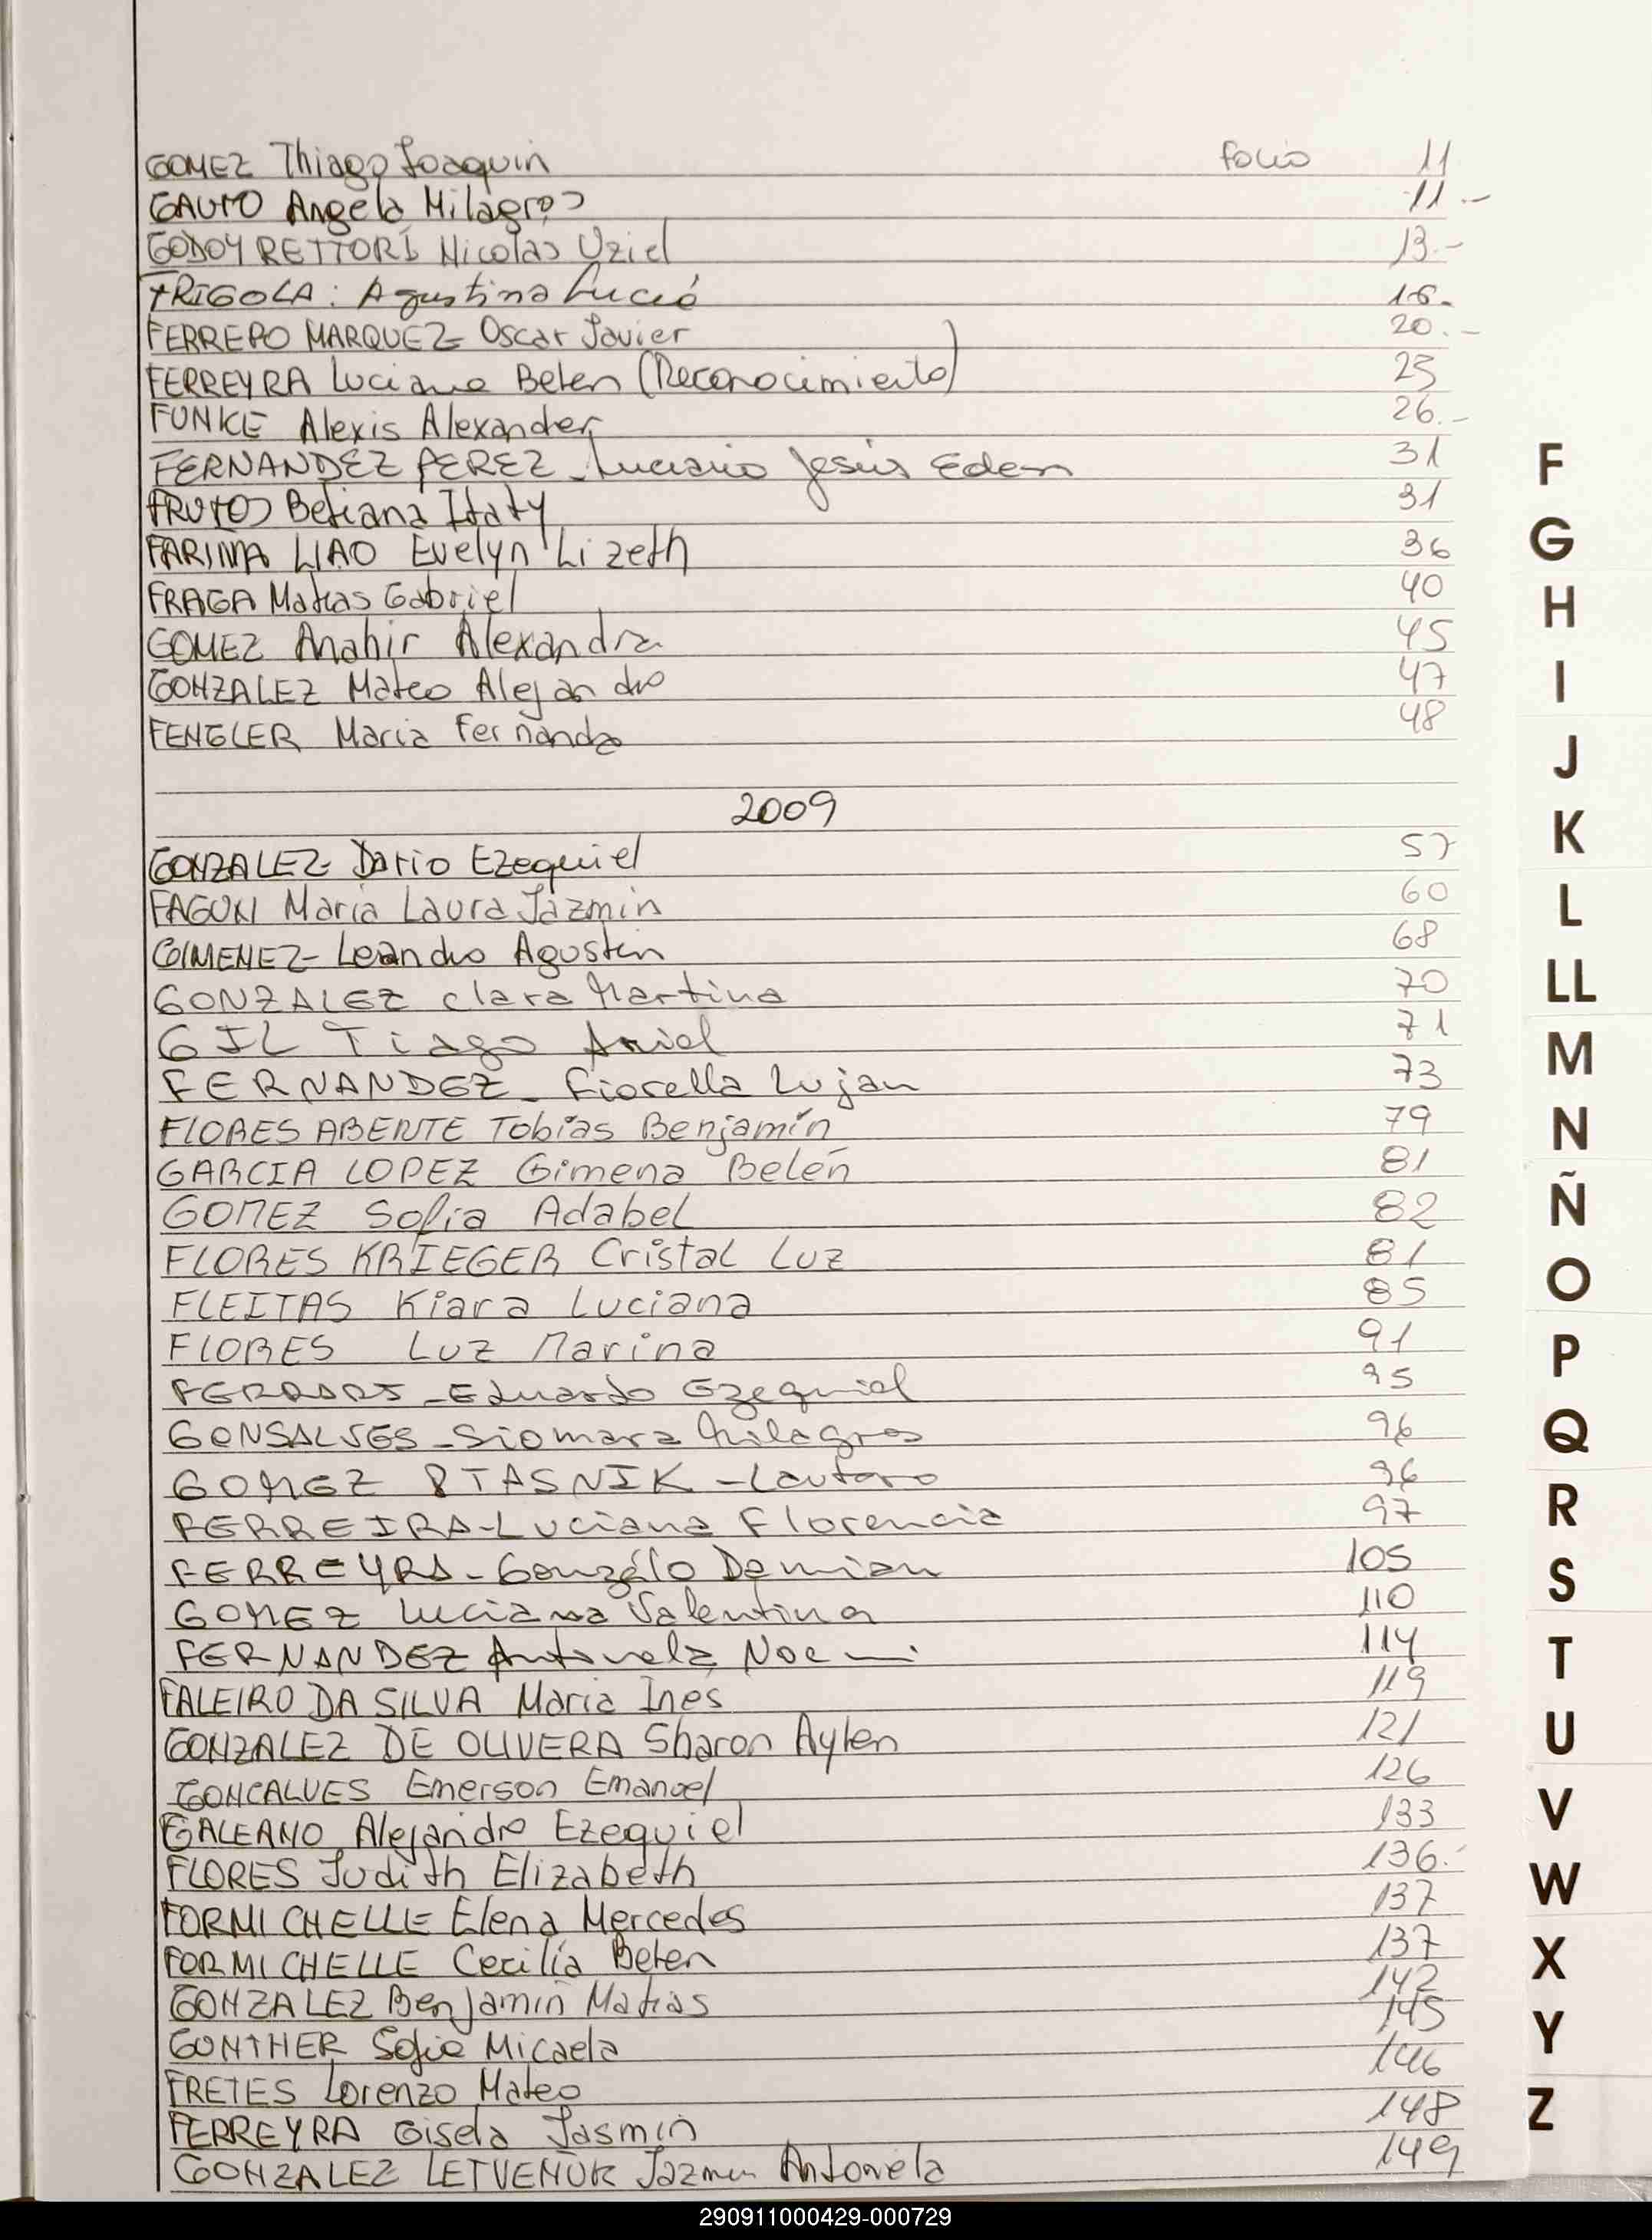 GOMEZ Thiago Joaquin folio 11
GAUTO Angela Milagros 11.-
GODOY RETTORI Nicolas Uziel 13.-
FRIGOLA: Agustina Lucía 16.
FERRERO MARQUEZ Oscar Javier 20.-
FERREYRA Luciana Belen (Reconocimiento) 25
FUNKE Alexis Alexander 26.-
FERNANDEZ PEREZ - Luciano Jesús Eden 31
FRUTOS Betiana Itaty 31
FARIÑA LIAO Evelyn Lizeth 36
FRAGA Matias Gabriel 40
GOMEZ Anahir Alexandra 45
GONZALEZ Mateo Alejandro 47
FENGLER Maria Fernanda 48
2009
GONZALEZ Dario Ezequiel 57
FAGON Maria Laura Jazmin 60
GIMENEZ- Leandro Agustin 68
GONZALEZ Clara Martina 70
GIL Tiago Ariel 71
FERNANDEZ - Fiorella Lujan 73
FLORES ABENTE Tobías Benjamín 79
GARCIA LOPEZ Gimena Belén 81
GOMEZ Sofia Adabel 82
FLORES KRIEGER Cristal Luz 81
FLEITAS Kiara Luciana 85
FLORES Luz Marina 91
FERRARI - Eduardo Ezequiel 95
GONSALVES - Siomara Milagros 96
GOMEZ PTASNIK - Lautaro 96
FERREIRA - Luciana Florencia 97
FERREYRA - Gonzálo Demian 105
GOMEZ Luciana Valentina 110
FERNANDEZ Antonela Noemi 114
FALEIRO DA SILVA Maria Ines 119
GONZALEZ DE OLIVERA Sharon Aylen 121
GONCALVES Emerson Emanuel 126
GALEANO Alejandro Ezequiel 133
FLORES Judith Elizabeth 136.-
FORMICHELLE Elena Mercedes 137
FORMICHELLE Cecilia Belen 137
GONZALEZ Benjamin Matias 142
GUNTHER Sofia Micaela 145
FRETES Lorenzo Mateo 146
FERREYRA Gisela Jasmin 148
GONZALEZ LETVENUK Jazmin Antonela 149
F
G
H
I
J
K
L
LL
M
N
Ñ
O
P
Q
R
S
T
U
V
W
X
Y
Z
290911000429-000729